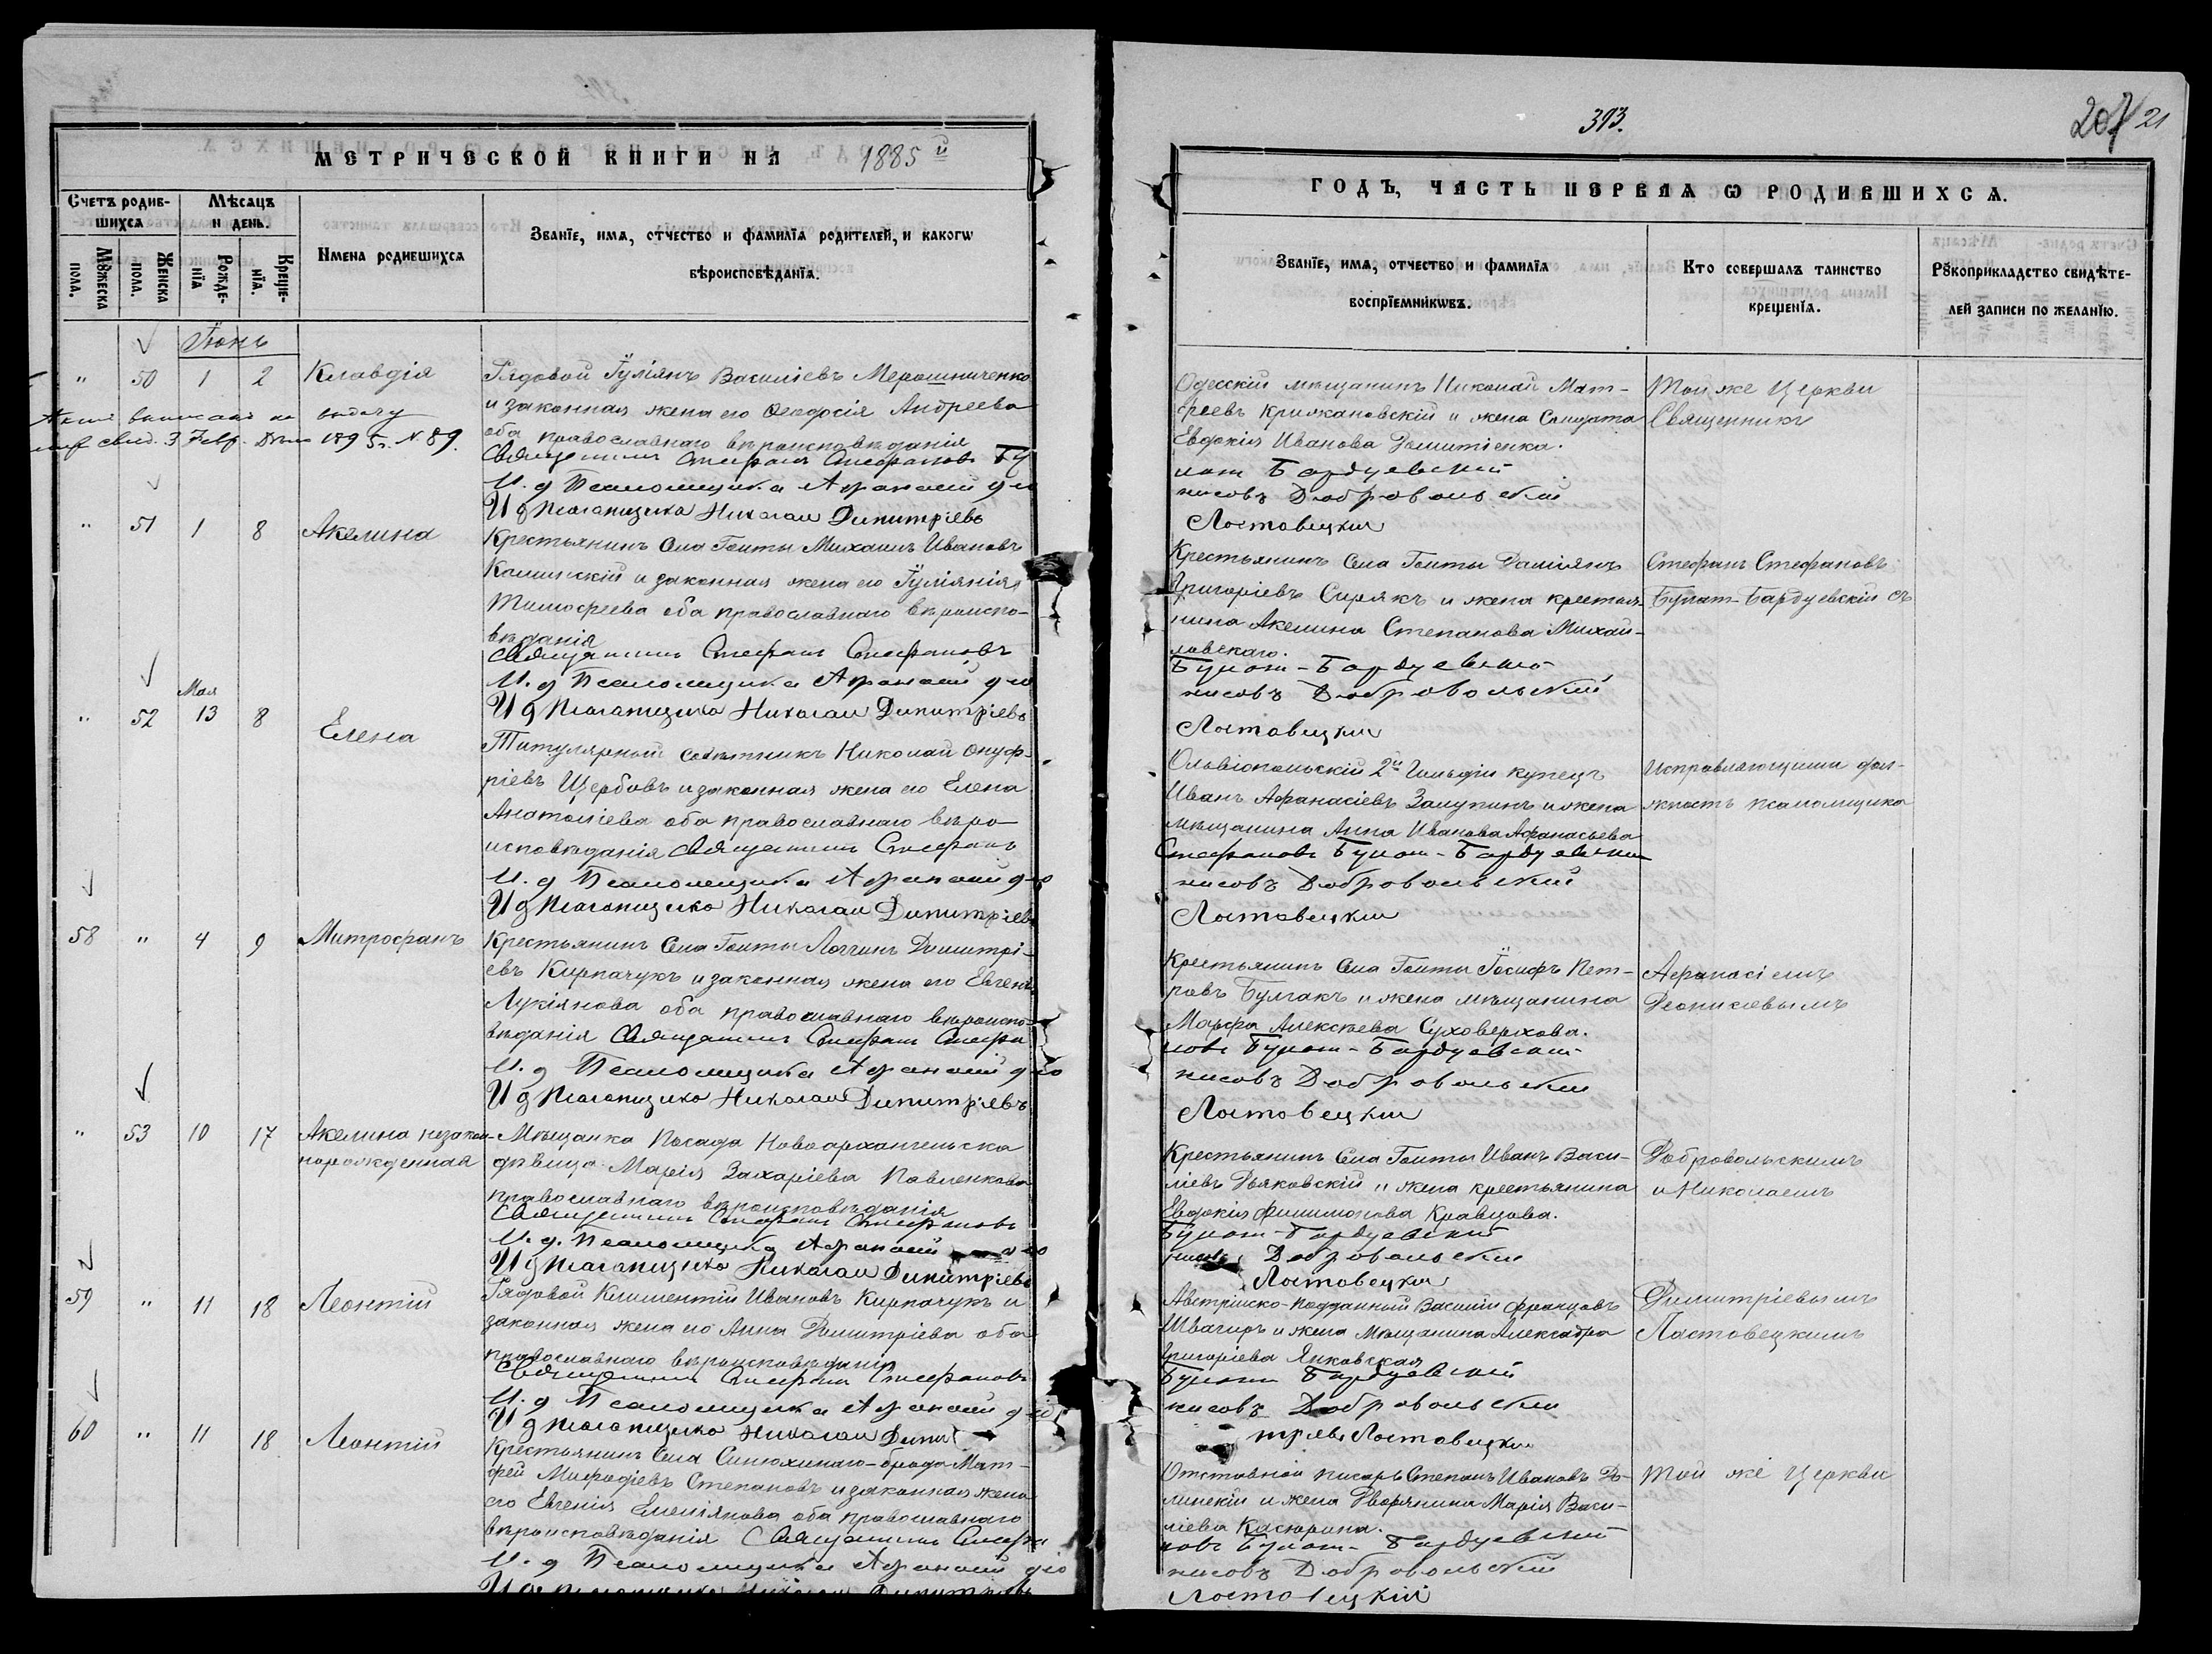 МЕТРИЧЕСКОЙ КНИГИ НА 1885й
Счетъ родив-
шихся
Мѣсяцъ
и день.
Мꙋжеска
пола.
Женска
пола.
Рожде-
нїя
Креще-
нїя.
Имена родившихся
Званїе, имя, отчество и фамилїя родителей, и какогѡ
вѣроисповѣданїя.
Іюнь
" 50 1 2 Клавдія
Рядовой Іуліянъ Василіевъ Мерошниченко
и законная жена его Ѳеодосія Андреева
оба православнаго вѣроисповѣданія
выдачу
свид. 3 Февр. 1895 г. № 89.
Священникъ Стефанъ Стефановъ Бу
И. д Псаломщика Афанасий Дио
И д Псаломщика Николай Димитріевъ
" 51 1 8 Акелина
Крестьянинъ Села Голты Михаилъ Ивановъ
и законная жена его Іуліянія
Тимофеева оба православнаго вѣроиспо-
вѣданія
Священникъ Стефанъ Стефановъ
И. д Псаломщика Афанасий Дио
И д Псаломщика Николай Димитріевъ
Мая
" 52 13 8 Елена
Титулярный совѣтникъ Николай Онуф-
ріевъ Щербовъ и законная жена его Елена
Анатоліева оба православнаго вѣро-
исповѣданія Священникъ Стефанъ
И. д Псаломщика Афанасий Дио
И д Псаломщика Николай Димитріевъ
58 " 4 9 Митрофанъ
Крестьянинъ Села Голты Логгинъ Димитрі-
евъ Кирпачукъ и законная жена его Евгенія
Лукіянова оба православнаго вѣроиспо-
вѣданія Священникъ Стефанъ Стефа
И. д Псаломщика Афанасий Дио
И д Псаломщика Николай Димитріевъ
" 53 10 17 Акелина незакон-
норожденная
Мѣщанка Посада Новоархангельска
дѣвица Марія Захаріева Павленкова
православнаго вѣроисповѣданія
Священникъ Стефанъ Стефановъ
И. д. Псаломщика Афанасий Дио
И д Псаломщика Николай Димитріевъ
59 " 11 18 Леонтій
Рядовой Климентій Ивановъ Кирпачукъ и
законная жена его Анна Димитріева оба
православнаго вѣроисповѣданія
Священникъ Стефанъ Стефановъ
И. д Псаломщика Афанасий Дио
И д Псаломщика Николай Дими
60 " 11 18 Леонтій
Крестьянинъ Села Синюхинаго-брода Мат-
фей Мефодіевъ Степановъ и законная жена
его Евгенія Емеліянова оба православнаго
вѣроисповѣданія Священникъ Стефа
И. д Псаломщика Афанасий Дио
И д Псаломщика Николай Димитріевъ
393.
207 21
ГОДЪ, ЧАСТЬ ПЕРВАѦ Ѡ РОДИВШИХСѦ.
Званїе, имя, отчество и фамилїя
воспрїемникѡвъ.
Кто совершалъ таинство
крещенїя.
Рꙋкоприкладство свидѣте-
лей записи по желанїю.
Одесскій мѣщанинъ Николай Мат-
феевъ Крижановскій и жена Солдата
Евдокія Иванова
латъ Бардуевский
нисовъ Добровольский
Ластовецкий
Той же Церкви
Священникъ
Крестьянинъ Села Голты Даміянъ
Григоріевъ Сирякъ и жена крестья-
нина Акелина Степанова Михай-
ловскаго.
Булат-Бардуевский
нисовъ Добровольский
Ластовецкий
Стефанъ Стефановъ
Булат-Бардуевскій съ
Ольвіопольскій 2й Гильдіи купецъ
Иванъ Афанасіевъ и жена
мѣщанина Анна Иванова Афанасьева
Стефановъ Булат-Бардуевский
нисовъ Добровольский
Ластовецкий
Исправляющими дол-
жность псаломщика
Крестьянинъ Села Голты Іосифъ Пет-
ровъ Булгакъ и жена мѣщанина
Марфа Алексѣева Суховерхова.
новъ Булат-Бардуевский
нисовъ Добровольский
Ластовецкий
Афанасіемъ
Деонисовымъ
Крестьянинъ Села Голты Иванъ Васи-
ліевъ Дьяковскій и жена крестьянина
Евдокія Филимонова Кравцова.
Булат-Бардуевский
нисовъ Добровольский
Ластовецкий
Добровольскимъ
и Николаемъ
Австрійско-подданный Василій Францовъ
Швагиръ и жена Мѣщанина Александра
Григоріева Янковская
Булат Бардуевский
нисовъ Добровольский
тріевъ Ластовецкий
Димитріевымъ
Ластовецкимъ
Отставной писарь Степанъ Ивановъ До-
линскій и жена Дворянина Марія Васи-
ліева
новъ Булат-Бардуевский
нисовъ Добровольский
Ластовецкій
Той же Церкви